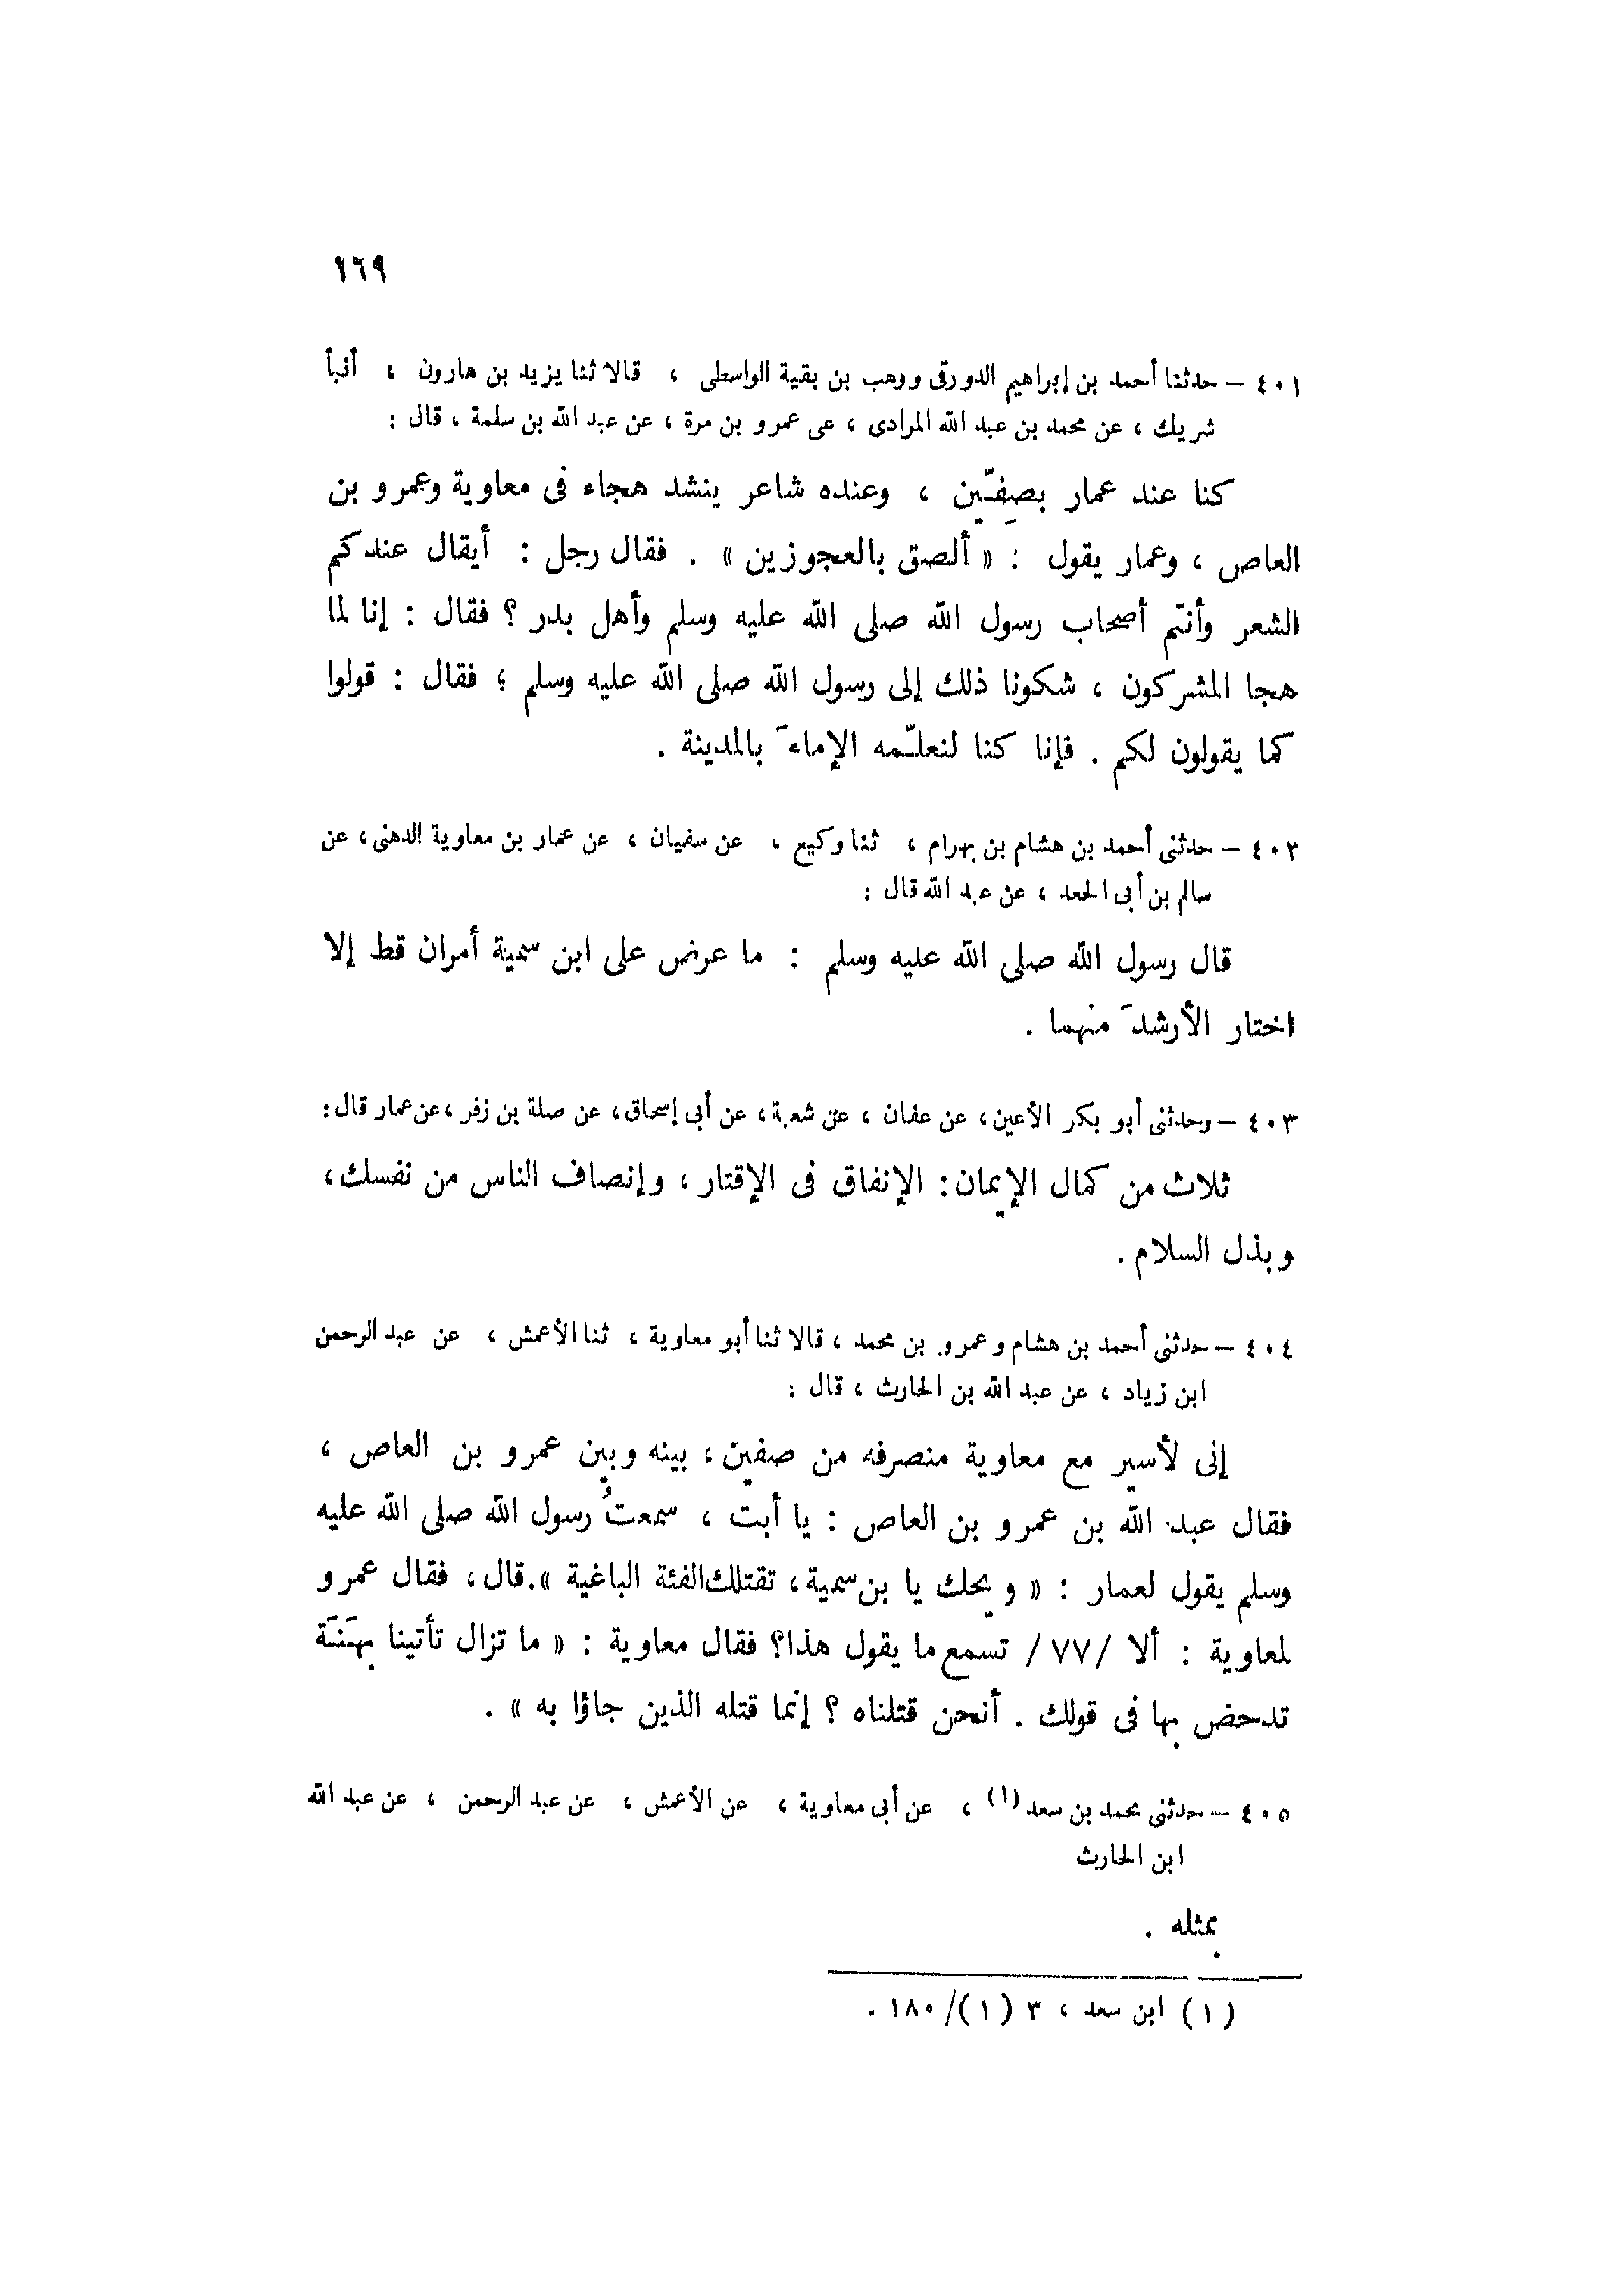 ١٦٩
٤٠١ – حدثنا أحمد بن إبراهيم الدورقى ووهب بن بقية الواسطى ، قالا ثنا يزيد بن هارون ، أنبأ
شريك ، عن محمد بن عبد الله المرادى ، عى عمرو بن مرة ، عن عبد الله بن سلمة ، قال :
كنا عند عمار بصِفّين ، وعنده شاعر ينشد هجاء فى معاوية وعمرو بن
العاص ، وعمار يقول : « ألصق بالعجوزين » . فقال رجل : أيقال عندكم
الشعر وأنتم أصحاب رسول الله صلى الله عليه وسلم وأهل بدر ؟ فقال : إنا لما
هجا المشركون ، شكونا ذلك إلى رسول الله صلى الله عليه وسلم ؛ فقال : قولوا
كما يقولون لكم . فإنا كنا لنعلّمه الإماءَ بالمدينة .
٤٠٢ – حدثنى أحمد بن هشام بن بهرام ، ثنا وكيع ، عن سفيان ، عن عمار بن معاوية الدهنى ، عن
سالم بن أبى الجعد ، عن عبد الله قال :
قال رسول الله صلى الله عليه وسلم : ما عرض على ابن سمية أمران قط إلا
اختار الأرشدَ منهما .
٤٠٣ – وحدثنى أبو بكر الأعين ، عن عفان ، عن شعبة ، عن أبى إسحاق ، عن صلة بن زفر ، عن عمار قال :
ثلاث من كمال الإيمان : الإنفاق فى الإقتار ، وإنصاف الناس من نفسك ،
وبذل السلام .
٤٠٤ – حدثنى أحمد بن هشام وعمرو بن محمد ، قالا ثنا أبو معاوية ، ثنا الأعمش ، عن عبد الرحمن
ابن زياد ، عن عبد الله بن الحارث ، قال :
إنى لأسير مع معاوية منصرفه من صفين ، بينه وبين عمرو بن العاص ،
فقال عبد الله بن عمرو بن العاص : يا أبت ، سمعتُ رسول الله صلى الله عليه
وسلم يقول لعمار : « ويحك يا بن سمية ، تقتلك الفئة الباغية » . قال ، فقال عمرو
لمعاوية : ألا /٧٧/ تسمع ما يقول هذا؟ فقال معاوية : « ما تزال تأتينا بهَنَة
تدحض بها فى قولك . أنحن قتلناه ؟ إنما قتله الذين جاؤا به » .
٤٠٥ – حدثنى محمد بن سعد (١) ، عن أبى معاوية ، عن الأعمش ، عن عبد الرحمن ، عن عبد الله
ابن الحارث
بمثله .
(١) ابن سعد ، ٣ (١)/١٨٠ .